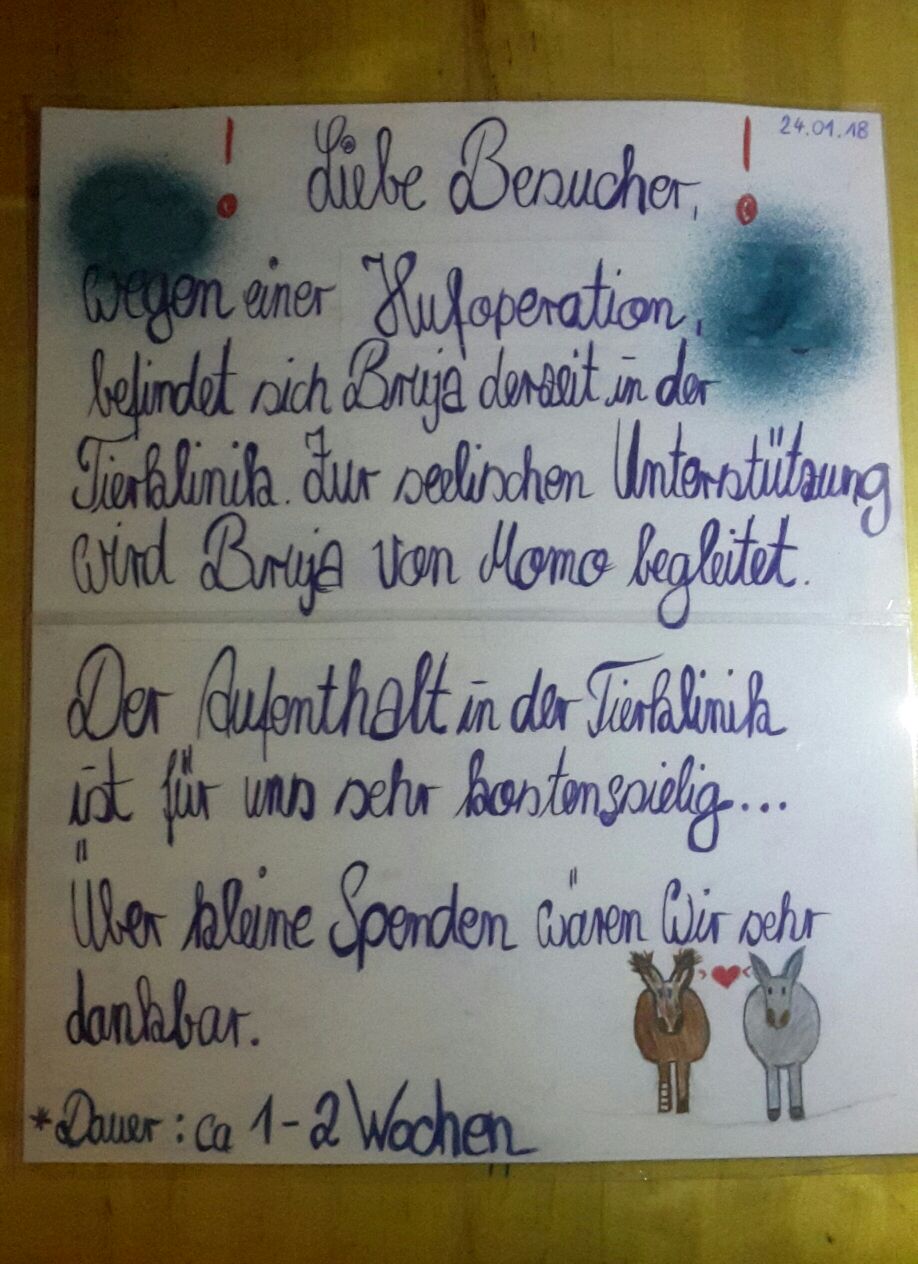 24.01.18
! Liebe Besucher, !
wegen einer Hufoperation,
befindet sich Bruja derzeit in der
Tierklinik. Zur seelischen Unterstützung
wird Bruja von Momo begleitet.
Der Aufenthalt in der Tierklinik
ist für uns sehr kostenspielig...
Über kleine Spenden wären Wir sehr
dankbar.
*Dauer: ca 1-2 Wochen